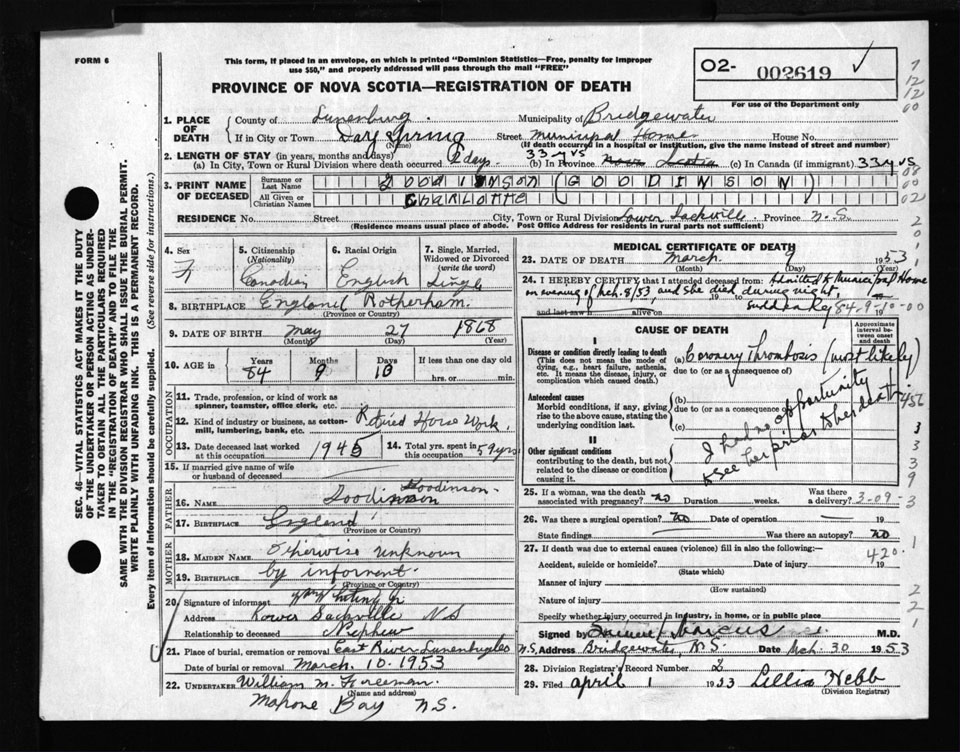 FORM 6
This form, if placed in an envelope, on which is printed "Dominion Statistics—Free, penalty for improper
use $50," and properly addressed will pass through the mail "FREE"
O2- 002619
For use of the Department only
PROVINCE OF NOVA SCOTIA—REGISTRATION OF DEATH
1. PLACE OF DEATH
County of Lunenburg. Municipality of Bridgewater
If in City or Town Day Spring Street Municipal Home House No.
(Name) (If death occurred in a hospital or institution, give the name instead of street and number)
2. LENGTH OF STAY (in years, months and days)
(a) In City, Town or Rural Division where death occurred 2 days (b) In Province 33 yrs Nova Scotia (c) In Canada (if immigrant) 33 yrs
3. PRINT NAME OF DECEASED
Surname or Last Name GOODINSON (GOODINSON)
All Given or Christian Names CHARLOTTE
RESIDENCE No. Street City, Town or Rural Division Lower Sackville Province N.S.
(Residence means usual place of abode. Post Office Address for residents in rural parts not sufficient)
4. Sex F
5. Citizenship (Nationality) Canadian
6. Racial Origin English
7. Single, Married, Widowed or Divorced (write the word) Single
8. BIRTHPLACE England Rotherham.
(Province or Country)
9. DATE OF BIRTH May 27 1868
(Month) (Day) (Year)
10. AGE in Years 84 Months 9 Days 10 If less than one day old
hrs. or min.
OCCUPATION
11. Trade, profession, or kind of work as
spinner, teamster, office clerk, etc.
12. Kind of industry or business, as cotton-
mill, lumbering, bank, etc. Retired House Work.
13. Date deceased last worked
at this occupation 1945
14. Total yrs. spent in
this occupation 59 yrs
15. If married give name of wife
or husband of deceased
FATHER
16. Name Goodinson
17. Birthplace England
(Province or Country)
MOTHER
18. Maiden Name Otherwise unknown
19. Birthplace by informent.
(Province or Country)
20. Signature of informant
Address Lower Sackville NS
Relationship to deceased Nephew
21. Place of burial, cremation or removal East River Lunenburg Co
Date of burial or removal March. 10. 1953
22. UNDERTAKER William M. Foreeman.
(Name and address)
Mahone Bay N.S.
MEDICAL CERTIFICATE OF DEATH
23. DATE OF DEATH March. 9 1953
(Month) (Day) (Year)
24. I HEREBY CERTIFY that I attended deceased from: Admitted to Municipal Home
on evening of Mch. 8/53, and she died during night, 19
and last saw h alive on suddenly 84-9-10-00
CAUSE OF DEATH
Approximate interval between onset and death
I
Disease or condition directly leading to death
(This does not mean the mode of
dying, e.g., heart failure, asthenia,
etc. It means the disease, injury, or
complication which caused death.)
(a) Coronery Thrombosis (most likely)
due to (or as a consequence of)
Antecedent causes
Morbid conditions, if any, giving
rise to the above cause, stating the
underlying condition last.
(b)
due to (or as a consequence of)
(c)
I had no opportunity
to see her prior to her death
II
Other significant conditions
contributing to the death, but not
related to the disease or condition
causing it.
25. If a woman, was the death
associated with pregnancy? no Duration weeks. Was there a delivery? 3-09-
26. Was there a surgical operation? no Date of operation 19
State findings Was there an autopsy? no
27. If death was due to external causes (violence) fill in also the following:— 420.1
Accident, suicide or homicide? Date of injury 19
(State which)
Manner of injury
(How sustained)
Nature of injury
Specify whether injury occurred in industry, in home, or in public place
Signed by Samuel Marcus M.D.
Address Bridgewater, N.S. Date Mch. 30 1953
28. Division Registrar's Record Number 2
29. Filed April 1 1953 Lillia Webb
(Division Registrar)
SEC. 46—VITAL STATISTICS ACT MAKES IT THE DUTY
OF THE UNDERTAKER OR PERSON ACTING AS UNDER-
TAKER TO OBTAIN ALL THE PARTICULARS REQUIRED
IN THE "REGISTRATION OF DEATH" AND TO FILE THE
SAME WITH THE DIVISION REGISTRAR WHO SHALL ISSUE THE BURIAL PERMIT.
WRITE PLAINLY WITH UNFADING INK. THIS IS A PERMANENT RECORD.
Every item of information should be carefully supplied. (See reverse side for instructions.)